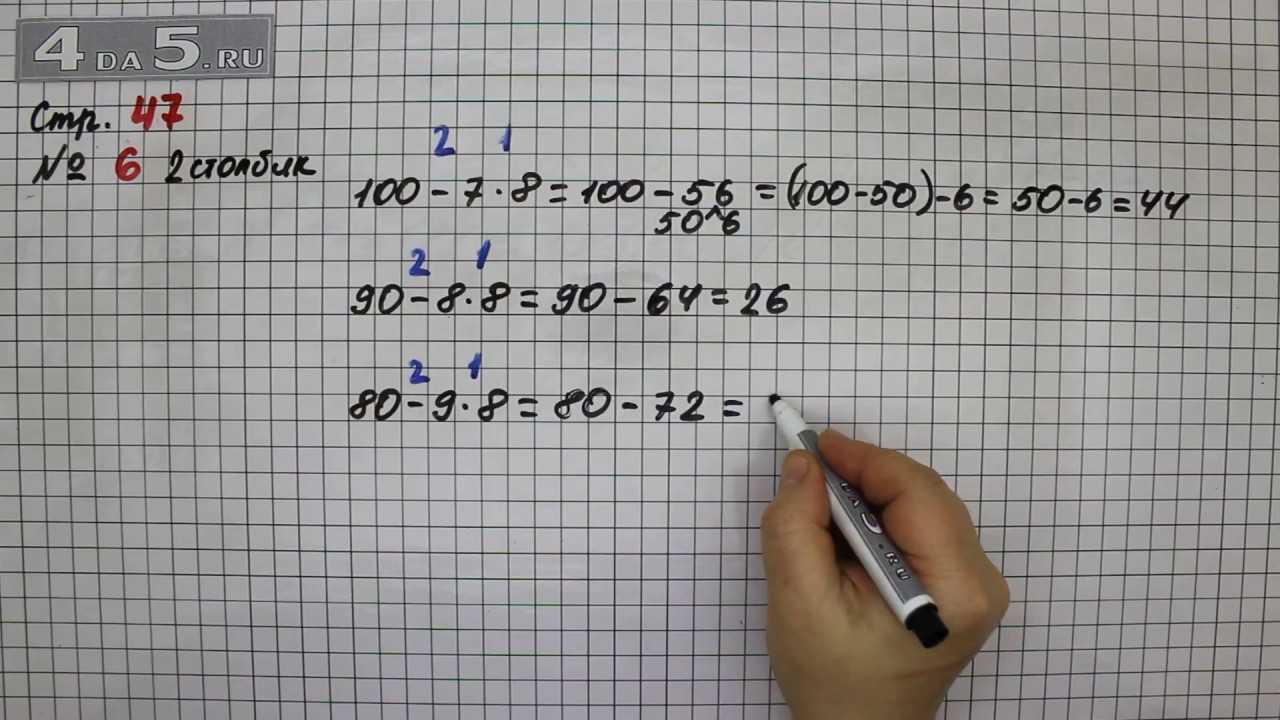 4DA5.RU
Стр. 47
№ 6 2 столбик
2 1
100 - 7 · 8 = 100 - 56 = (100 - 50) - 6 = 50 - 6 = 44
50^6
2 1
90 - 8 · 8 = 90 - 64 = 26
2 1
80 - 9 · 8 = 80 - 72 =
DA5.RU